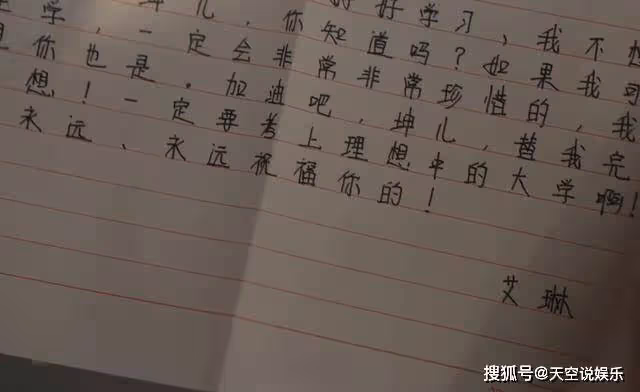 好学习、我不想
坤儿，你知道吗？如果我可
学，一定会非常非常珍惜的，我
你也是。加迪吧，坤儿，替我完
想！一定要考上理想中的大学啊！
永远、永远祝福你的！
艾琳
搜狐号@天空说娱乐